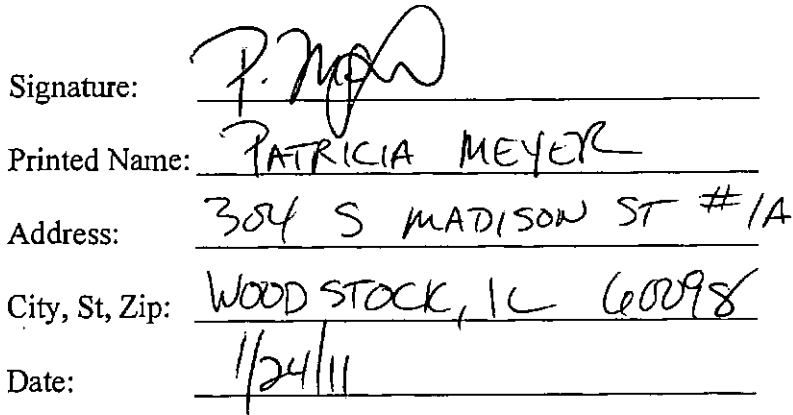 Signature: P. Meyer
Printed Name: PATRICIA MEYER
Address: 304 S MADISON ST #1A
City, St, Zip: WOODSTOCK, IL 60098
Date: 1/24/11